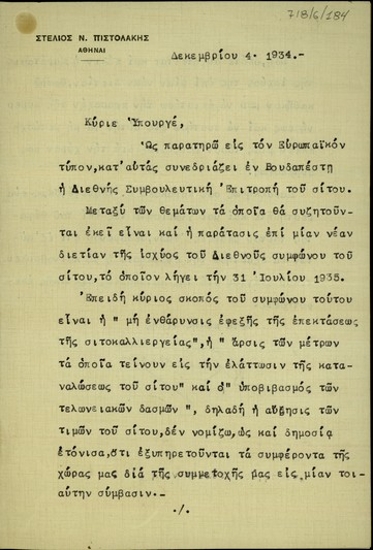 718/6/184
ΣΤΕΛΙΟΣ Ν. ΠΙΣΤΟΛΑΚΗΣ
ΑΘΗΝΑΙ
Δεκεμβρίου 4. 1934.-
Κύριε Ὑπουργέ,
Ὡς παρατηρῶ εἰς τόν Εὐρωπαϊκόν
τύπον,κατ'αὐτάς συνεδριάζει ἐν Βουδαπέστῃ
ἡ Διεθνής Συμβουλευτική Ἐπιτροπή τοῦ σίτου.
Μεταξύ τῶν θεμάτων τά ὁποῖα θά συζητοῦν-
ται ἐκεῖ εἶναι καί ἡ παράτασις ἐπί μίαν νέαν
διετίαν τῆς ἰσχύος τοῦ Διεθνοῦς συμφώνου τοῦ
σίτου,τό ὁποῖον λήγει τήν 31 Ἰουλίου 1935.
Ἐπειδή κύριος σκοπός τοῦ συμφώνου τούτου
εἶναι ἡ " μή ἐνθάρυνσις ἐφεξῆς τῆς ἐπεκτάσεως
τῆς σιτοκαλλιεργείας",ἡ " ἄρσις τῶν μέτρων
τά ὁποῖα τείνουν εἰς τήν ἐλάττωσιν τῆς κατα-
ναλώσεως τοῦ σίτου" καί ὁ" ὑποβιβασμός τῶν
τελωνειακῶν δασμῶν", δηλαδή ἡ αὔξησις τῶν
τιμῶν τοῦ σίτου,δέν νομίζω,ὡς καί δημοσίᾳ
ἐτόνισα,ὅτι ἐξυπηρετοῦνται τά συμφέροντα τῆς
χώρας μας διά τῆς συμμετοχῆς μας εἰς μίαν τοι-
αύτην σύμβασιν.-
./.